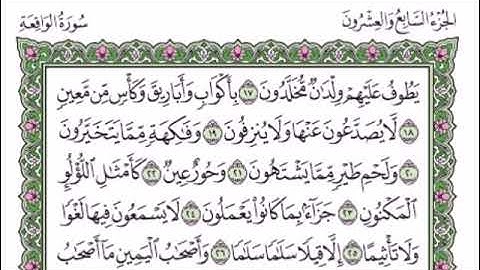 الجزء السابع والعشرون
سورة الواقعة
يَطُوفُ عَلَيْهِمْ وِلْدَٰنٌ مُّخَلَّدُونَ ١٧ بِأَكْوَابٍ وَأَبَارِيقَ وَكَأْسٍ مِّن مَّعِينٍ
١٨ لَّا يُصَدَّعُونَ عَنْهَا وَلَا يُنزِفُونَ ١٩ وَفَٰكِهَةٍ مِّمَّا يَتَخَيَّرُونَ
٢٠ وَلَحْمِ طَيْرٍ مِّمَّا يَشْتَهُونَ ٢١ وَحُورٌ عِينٌ ٢٢ كَأَمْثَٰلِ اللُّؤْلُوِٕ
الْمَكْنُونِ ٢٣ جَزَآءًۢ بِمَا كَانُوا۟ يَعْمَلُونَ ٢٤ لَا يَسْمَعُونَ فِيهَا لَغْوًا
وَلَا تَأْثِيمًا ٢٥ إِلَّا قِيلًا سَلَٰمًا سَلَٰمًا ٢٦ وَأَصْحَٰبُ الْيَمِينِ مَآ أَصْحَٰبُ